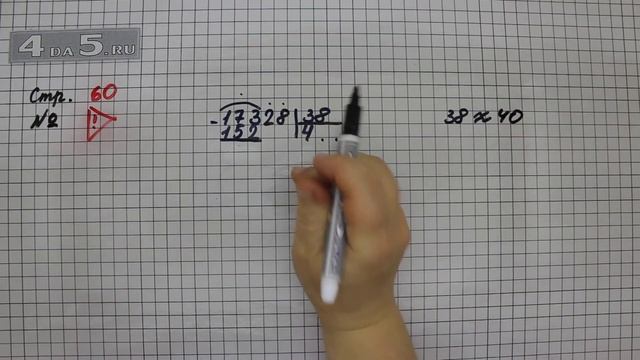 4DA5.RU
Стр. 60
№ !
- 17328 | 38
152 | 4 . .
38 ≈ 40